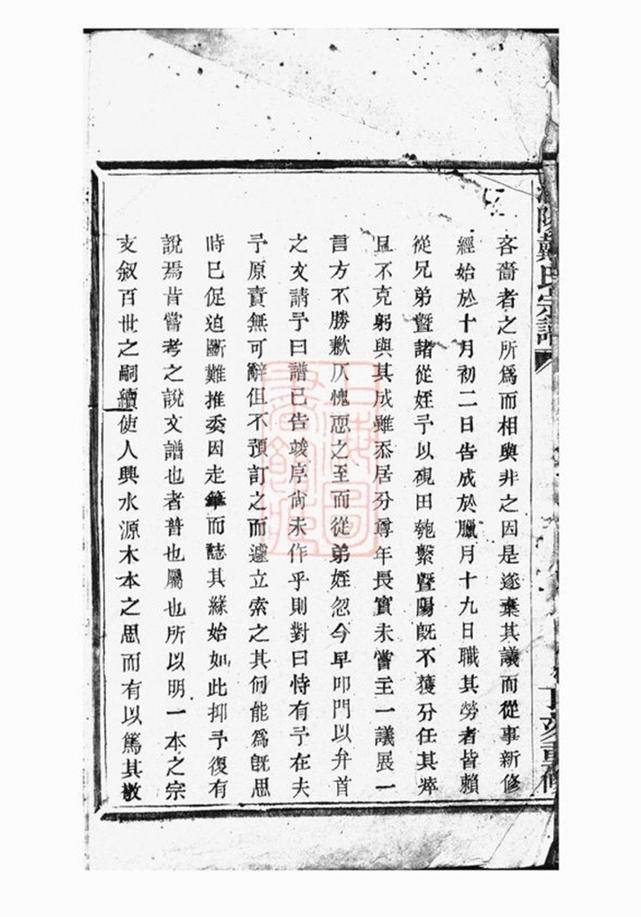 戴氏宗譜
吝嗇者之所爲而相與非之因是遂棄其議而從事新修
經始於十月初二日告成於臘月十九日職其勞者皆賴
從兄弟暨諸從姪予以硯田匏繫暨陽旣不獲分任其瘁
且不克躬與其成雖忝居分尊年長實未嘗主一議展一
言方不勝歉仄愧恧之至而從弟姪忽今早叩門以弁首
之文請予曰譜已告竣序尙未作乎則對曰恃有予在夫
予原責無可辭但不預訂之而遽立索之其何能爲旣思
時已促迫斷難推委因走筆而誌其緣始如此抑予復有
說焉昔嘗考之說文譜也者普也屬也所以明一本之宗
支叙百世之嗣續使人興水源木本之思而有以篤其敬